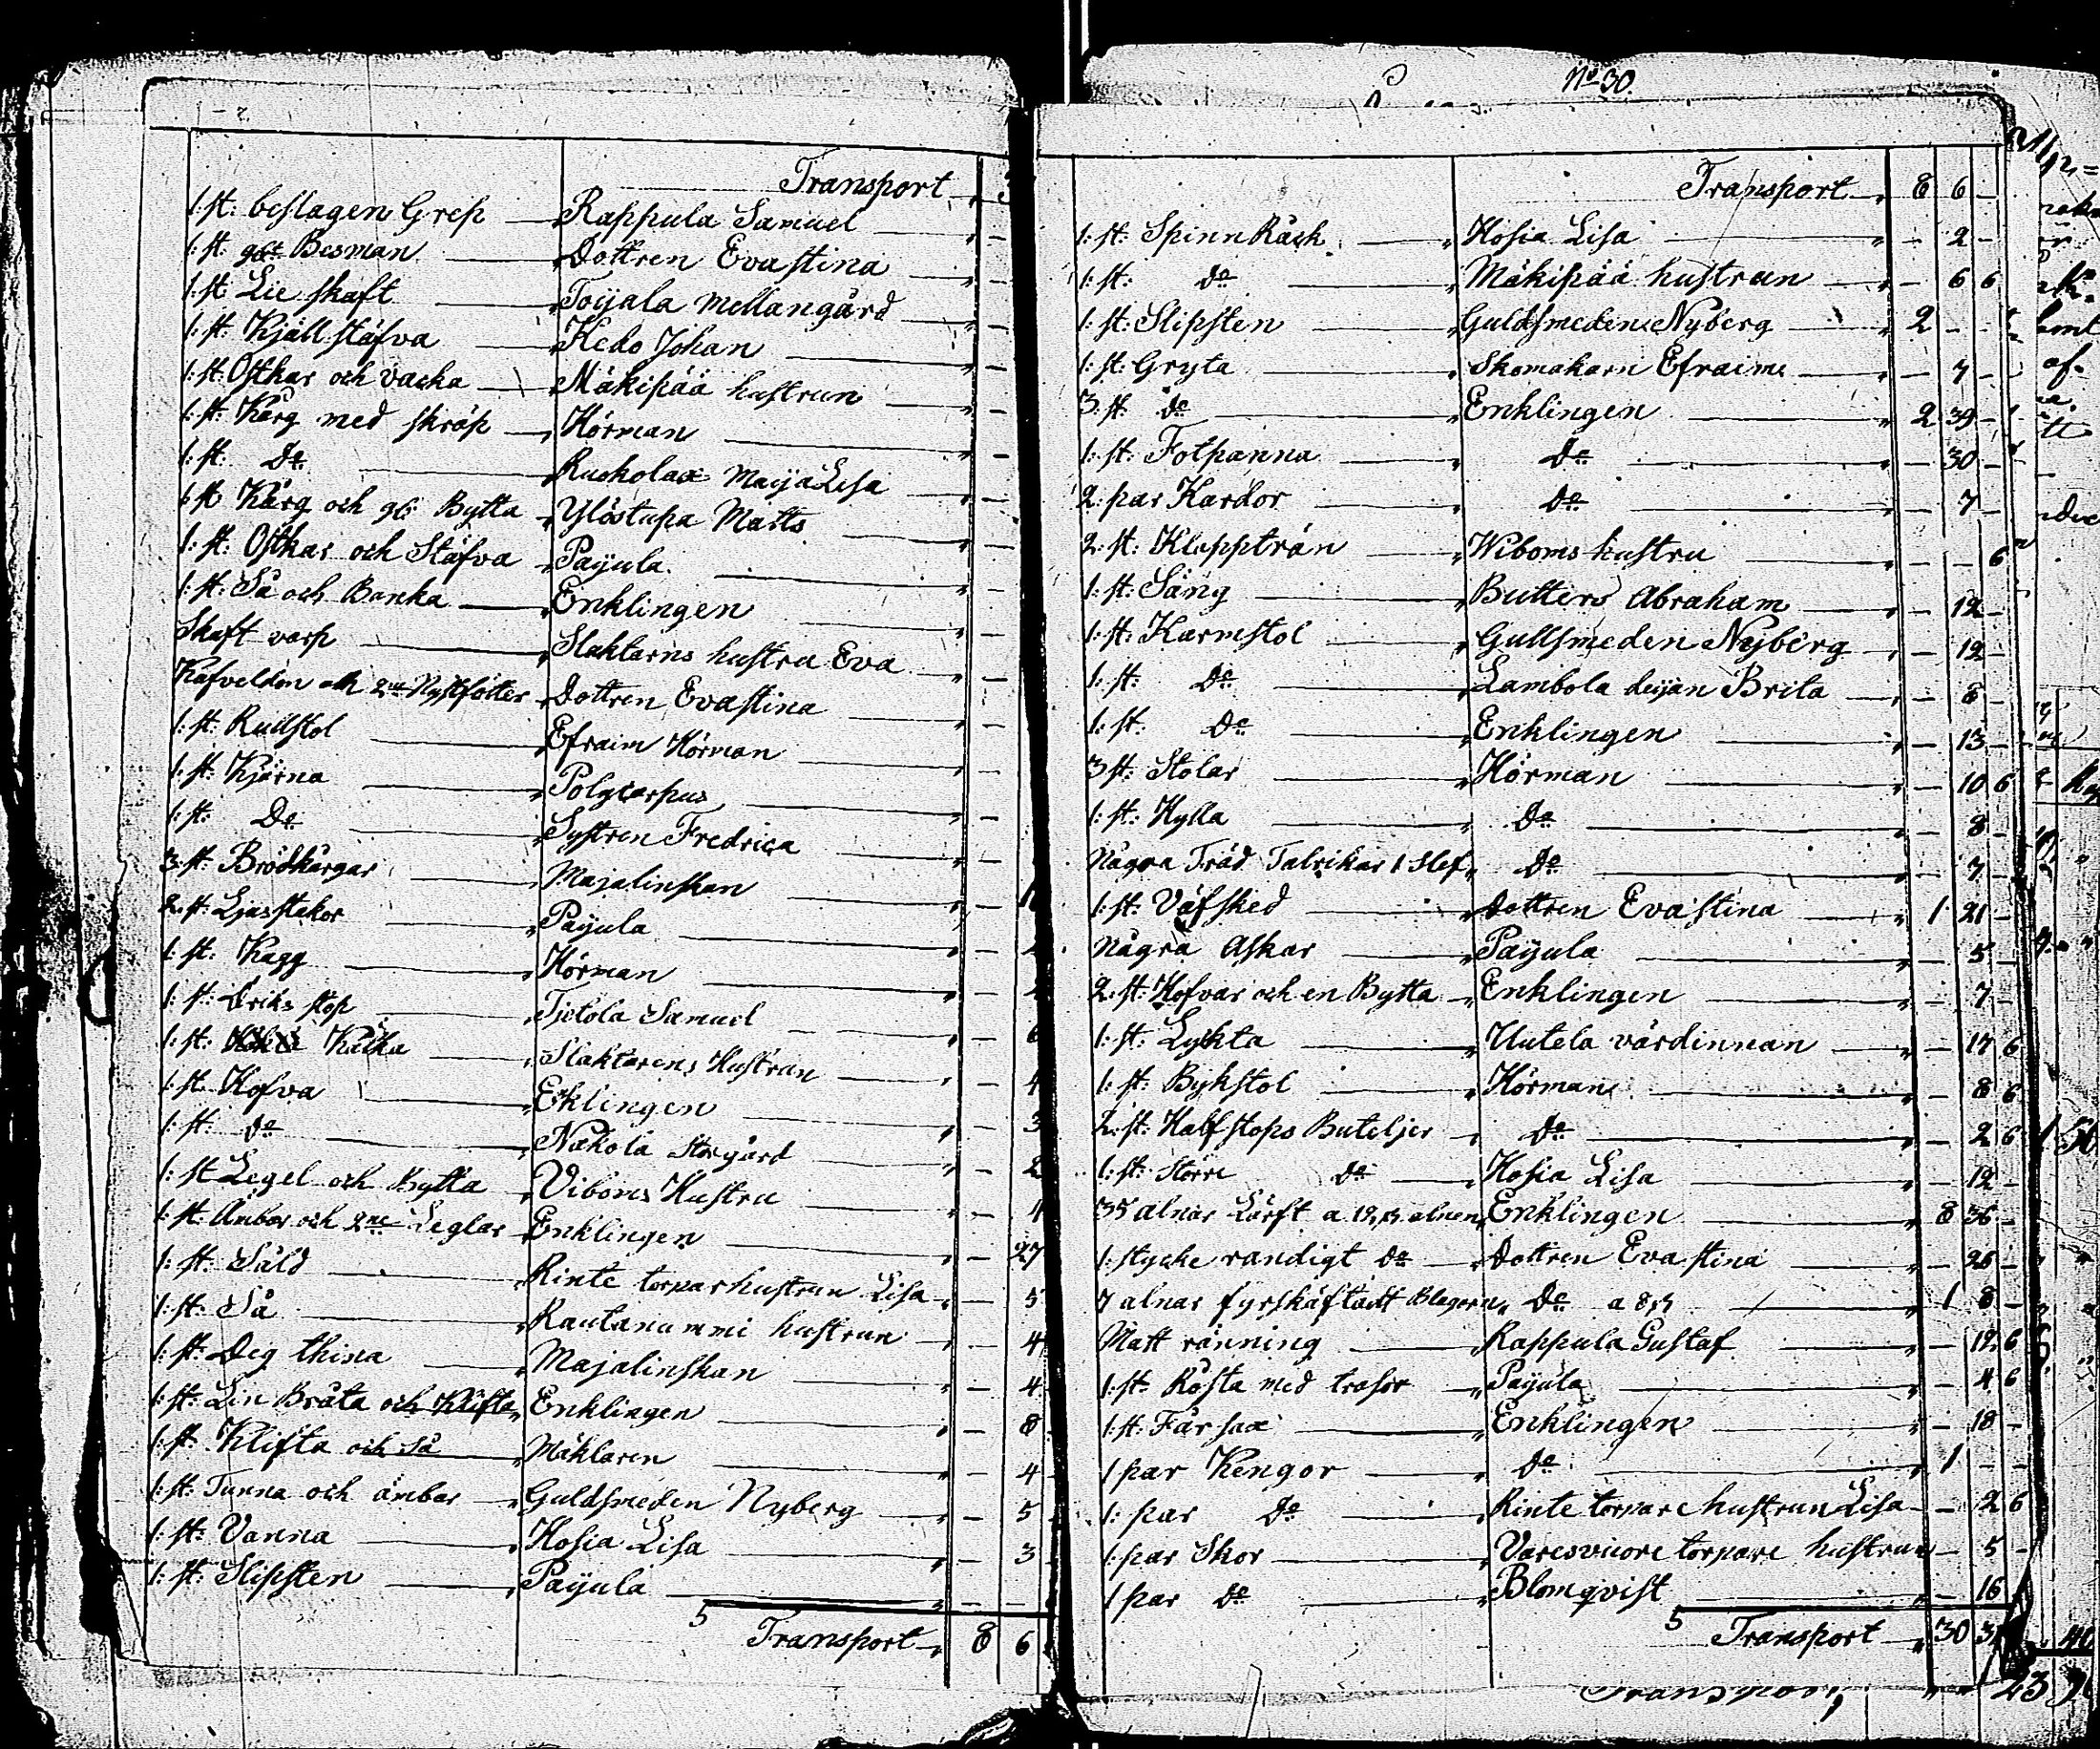 Transport
1: st: beslagen Grep Rappula Samuel
1: st: Besman Dottren Evastina
1: st: Lie skaft Toijala Mellangård
1: st: Kjäll stäfva Kedo Johan
1: st: Ostkar och vacka Mäkipää hustrun
1: st: Kârg med skräp Hörman
1: st: Do Maija Lisa
1: st: Kårg och Bytta Ylöstupa Matts
1: st: Ostkar och Stäfva Paijula
1: st: Så och Banka Enklingen
Skaft varp Slaktarns hustru Eva
2ne Nystfötter Dottren Evastina
1: st: Rullstol Efraim Hörman
1: st: Kjärna Polycarpus
1: st: Do Systren Fredrica
3: st: Brödkårgar Majalinskan
2: st: Ljusstakor Paijula
1: st: Kagg Hörman
1: st: Driks stop Tjetola Samuel
1: st: Slaktarens Hustrun
1: st: Hofva Eklingen
1: st: Do Nakola Storgård
1: st Legel och Bytta Viboms Hustru 4
1: st: Ämbar och 2ne Leglar Enklingen – 27
1: st: Såld Rinte torparhustrun Lisa – 5
1: st: Så Rautanummi hustrun – 4
1: st: Deg thina Majalinskan – 4
1: st: Lin Bråta och Klifta Enklingen – 8
1: st: Klifta och så Mäklaren – 4
1: st: Tunna och ämbar Guldsmeden Nyberg – 5
1: st: Vanna Hosia Lisa – 3
1: st: Slipsten Paijula – –
5
Transport 8 6
No 30.
Transport 8 6 –
1: st: Spinn Råck Hosia Lisa – 2 –
1: st: Do Mäkipää hustrun – 6 6
1: st: Slipsten Guldsmeden Nyberg 2 – –
1: st: Gryta Skomakarn Efraims – 7 –
3: st: Do Enklingen 2 39 –
1: st: Fotpanna Do – 30 –
2: par Kardor Do – 7 –
2: st: Klappträn Wiboms hustru – – 6
1: st: Säng Butters Abraham – 12 –
1: st: Karmstol Gullsmeden Nyberg – 12 –
1: st: Do Lambola deijan Brita – 8 –
1: st: Do Enklingen – 13 –
3 st: Stolar Hörman – 10 6
1: st: Hylla Do – 8 –
Några Träd Fabrikar 1 slef Do – 7 –
1: st: Väfsked Dottren Evastina 1 21 –
Några Askar Paijula – 5 –
2: st: Hofvar och en Bytta Enklingen – 7 –
1: st: Lykta Uutela värdinnan – 17 6
1: st: Bykstol Hörman – 8 6
2: st: Halfstops Buteljer Do – 2 6
1: st: Större Do Hosia Lisa – 12 –
35 alnar Lärft a 12 alnen Enklingen 8 36 –
1: stycke randigt Do Dottren Evastina – 26 –
7 alnar Do a 8 1 8 –
Matt ränning Rappula Gustaf – 12 6
1: st: Råsta med trasor Paijula – 4 6
1: st: Får sax Enklingen – 18 –
1 par Kengor Do 1 – –
1: par Do Rinte torpare hustrun Lisa – 2 6
1: par Skor Varesvuore torpare hustrun – 5 –
1 par Do Blomqvist – 16
5
Transport 30
Transport